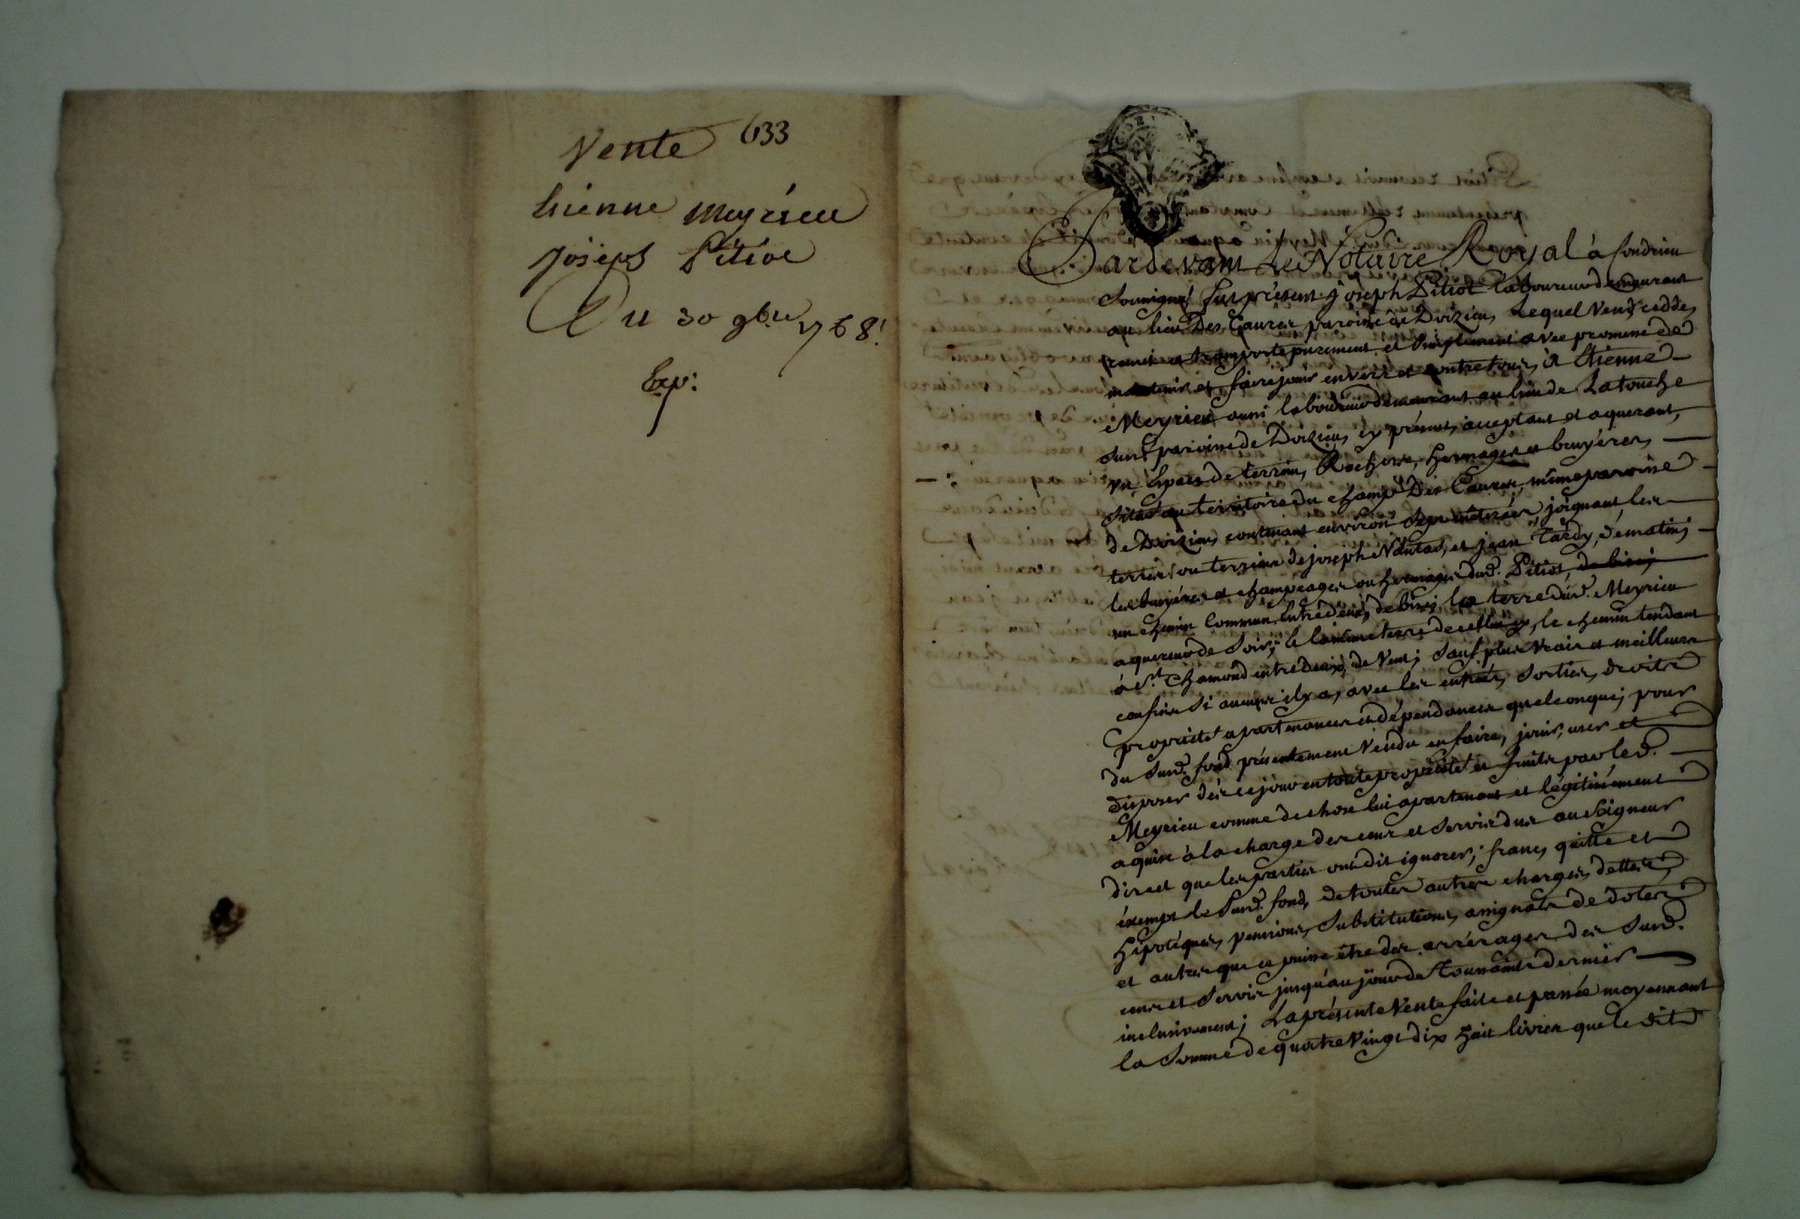 Vente 633
Etienne Meyrieu
Joseph Pitiot
Du 30 9bre 1768.
Exp:
Pardevant Le Notaire Royal à fondrieu
Soussigné fut présent Joseph Pitiot Laboureur demeurant
au lieu Des Gaures paroisse de Doizieu, Lequel Vend, cedde,
remet et transporte purement et Simplement avec promesse de
maintenir et faire jouir envers et contre tous, à Etienne
Meyrieu aussi laboureur demeurant au lieu de La touche
Susd. paroisse de Doizieu, ici présent, acceptant et aquerant,
un Espais de terrain, Rochers, hermages et bruyéres,
Situé au territoire du champ Des Gaures, même paroisse
de Doizieu, contenant environ Sept métérées, joignant, les
terres ou terrain de joseph et jean Tardy, de matin;
les bruyéres et champéages ou hermages dud. Pitiot,
un chemin Commun entre deux, de bize; la terre dud. Meyrieu
aquereur de Soir; et la même terre de celui cy, le chemin tendant
à St. Chamond entre Deux, de Vent; Sauf plus Vrais et meilleurs
confins Si aucuns il y a, avec les entrées, Sorties, droits
proprietés apartenances et dépendances quelconques; pour
du Susd. fond présentement Vendu en faire, jouir, user et
disposer dès ce jour en toute proprieté et fruits par led.
Meyrieu comme de chose lui apartenant et légitimement
aquise à la charge des cens et Servis dus au Seigneur
direct que les parties ont dit ignorer; franc, quitte et
éxempt le Susd. fond, de toutes autres charges, dettes,
hipotéques, pensions, Substitutions, assignats de dotes
et autres que ce puisse être des arrérages des Susd.
cens et Servis jusqu'au jour de Toussaints dernier
inclusivement; La présente Vente faite et passée moyennant
la Somme de quatre Vingt dix huit livres que le dit